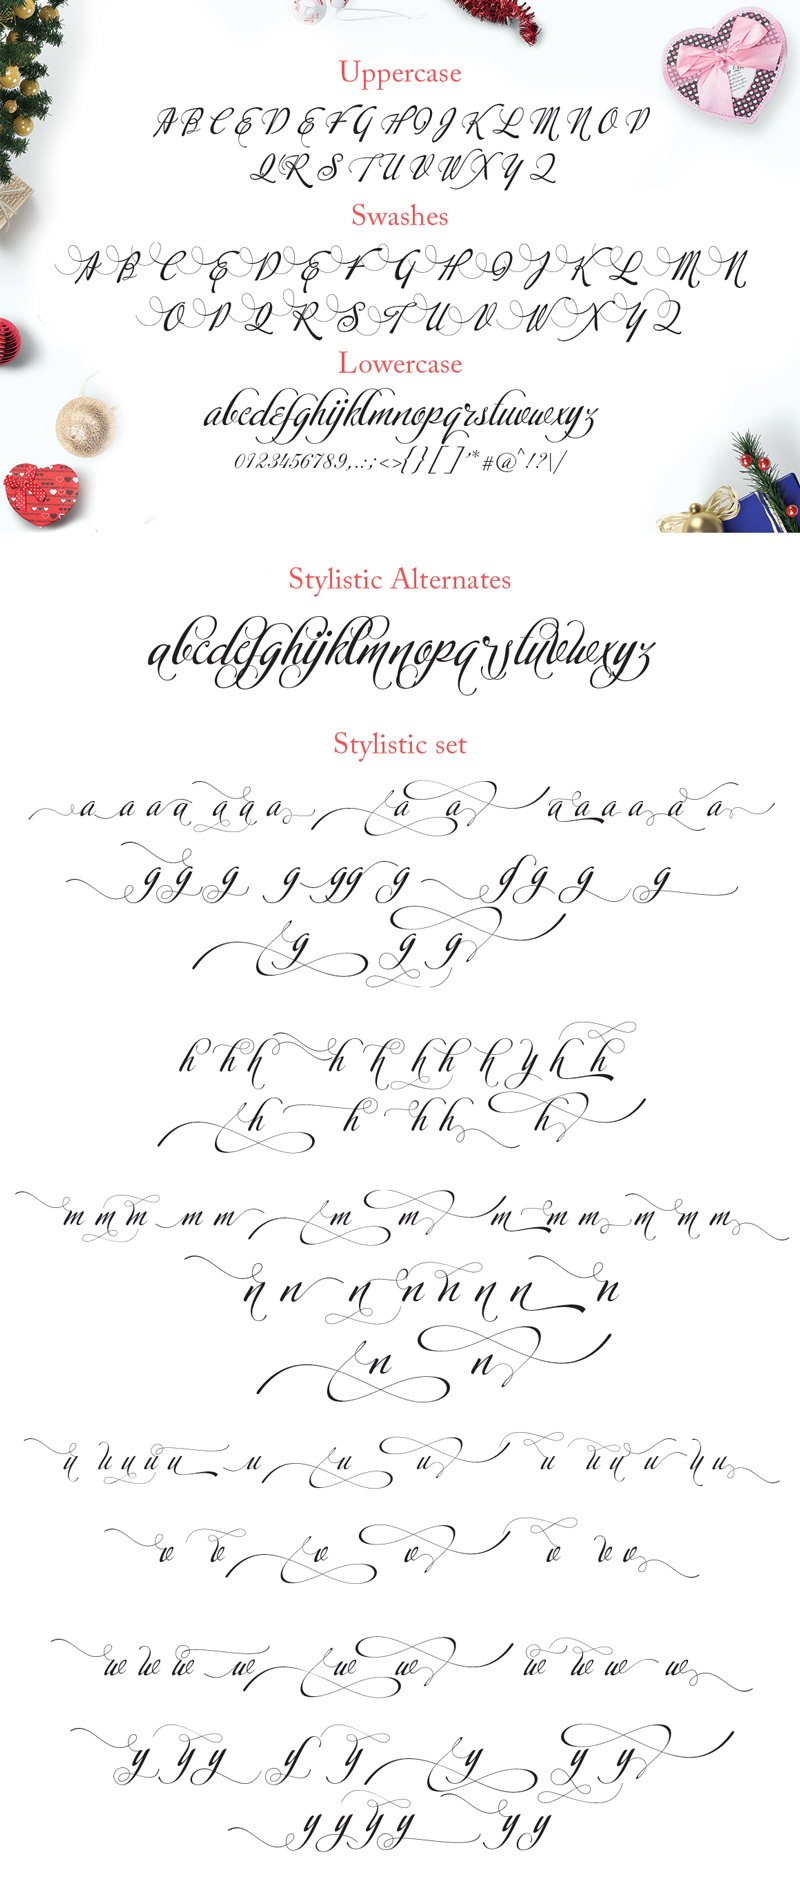 Uppercase
A B C E D E F G H I J K L M N O P
Q R S T U V W X Y Z
Swashes
A B C E D E F G H I J K L M N
O P Q R S T U V W X Y Z
Lowercase
abcdefghijklmnopqrstuvwxyz
0123456789,.:;<>{}[]'*#@^!?\/
Stylistic Alternates
abcdefghijklmnopqrstuvwxyz
Stylistic set
a a a a a a a a a a a a a a a
g g g g g g g g g g g
g g g
h h h h h h h h y h h
h h h h h
m m m m m m m m m m m m m
n n n n n n n n
n n
u u u u u u u u u u u u u u
v v v v v v v
w w w w w w w w w w
y y y y y y y y
y y y y y y